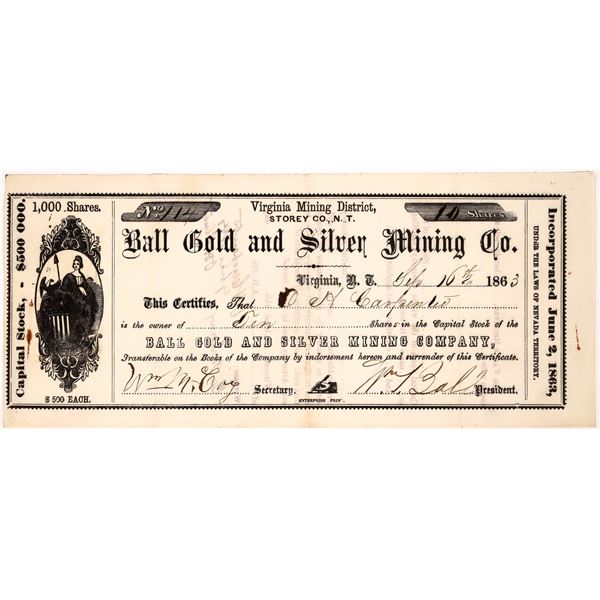 Capital Stock, - $500 000.
1,000 Shares.
$ 500 EACH.
No 114
Virginia Mining District,
STOREY CO., N. T.
10 Shares
Ball Gold and Silver Mining Co.
Virginia, N. T. Sep 16th 1863
This Certifies, That O H Carpenter
is the owner of Ten Shares in the Capital Stock of the
BALL GOLD AND SILVER MINING COMPANY,
Transferable on the Books of the Company by indorsement hereon and surrender of this Certificate.
Wm McCoy Secretary. Wm Ball President.
ENTERPRISE PRINT.
Incorporated June 2, 1863,
UNDER THE LAWS OF NEVADA TERRITORY.